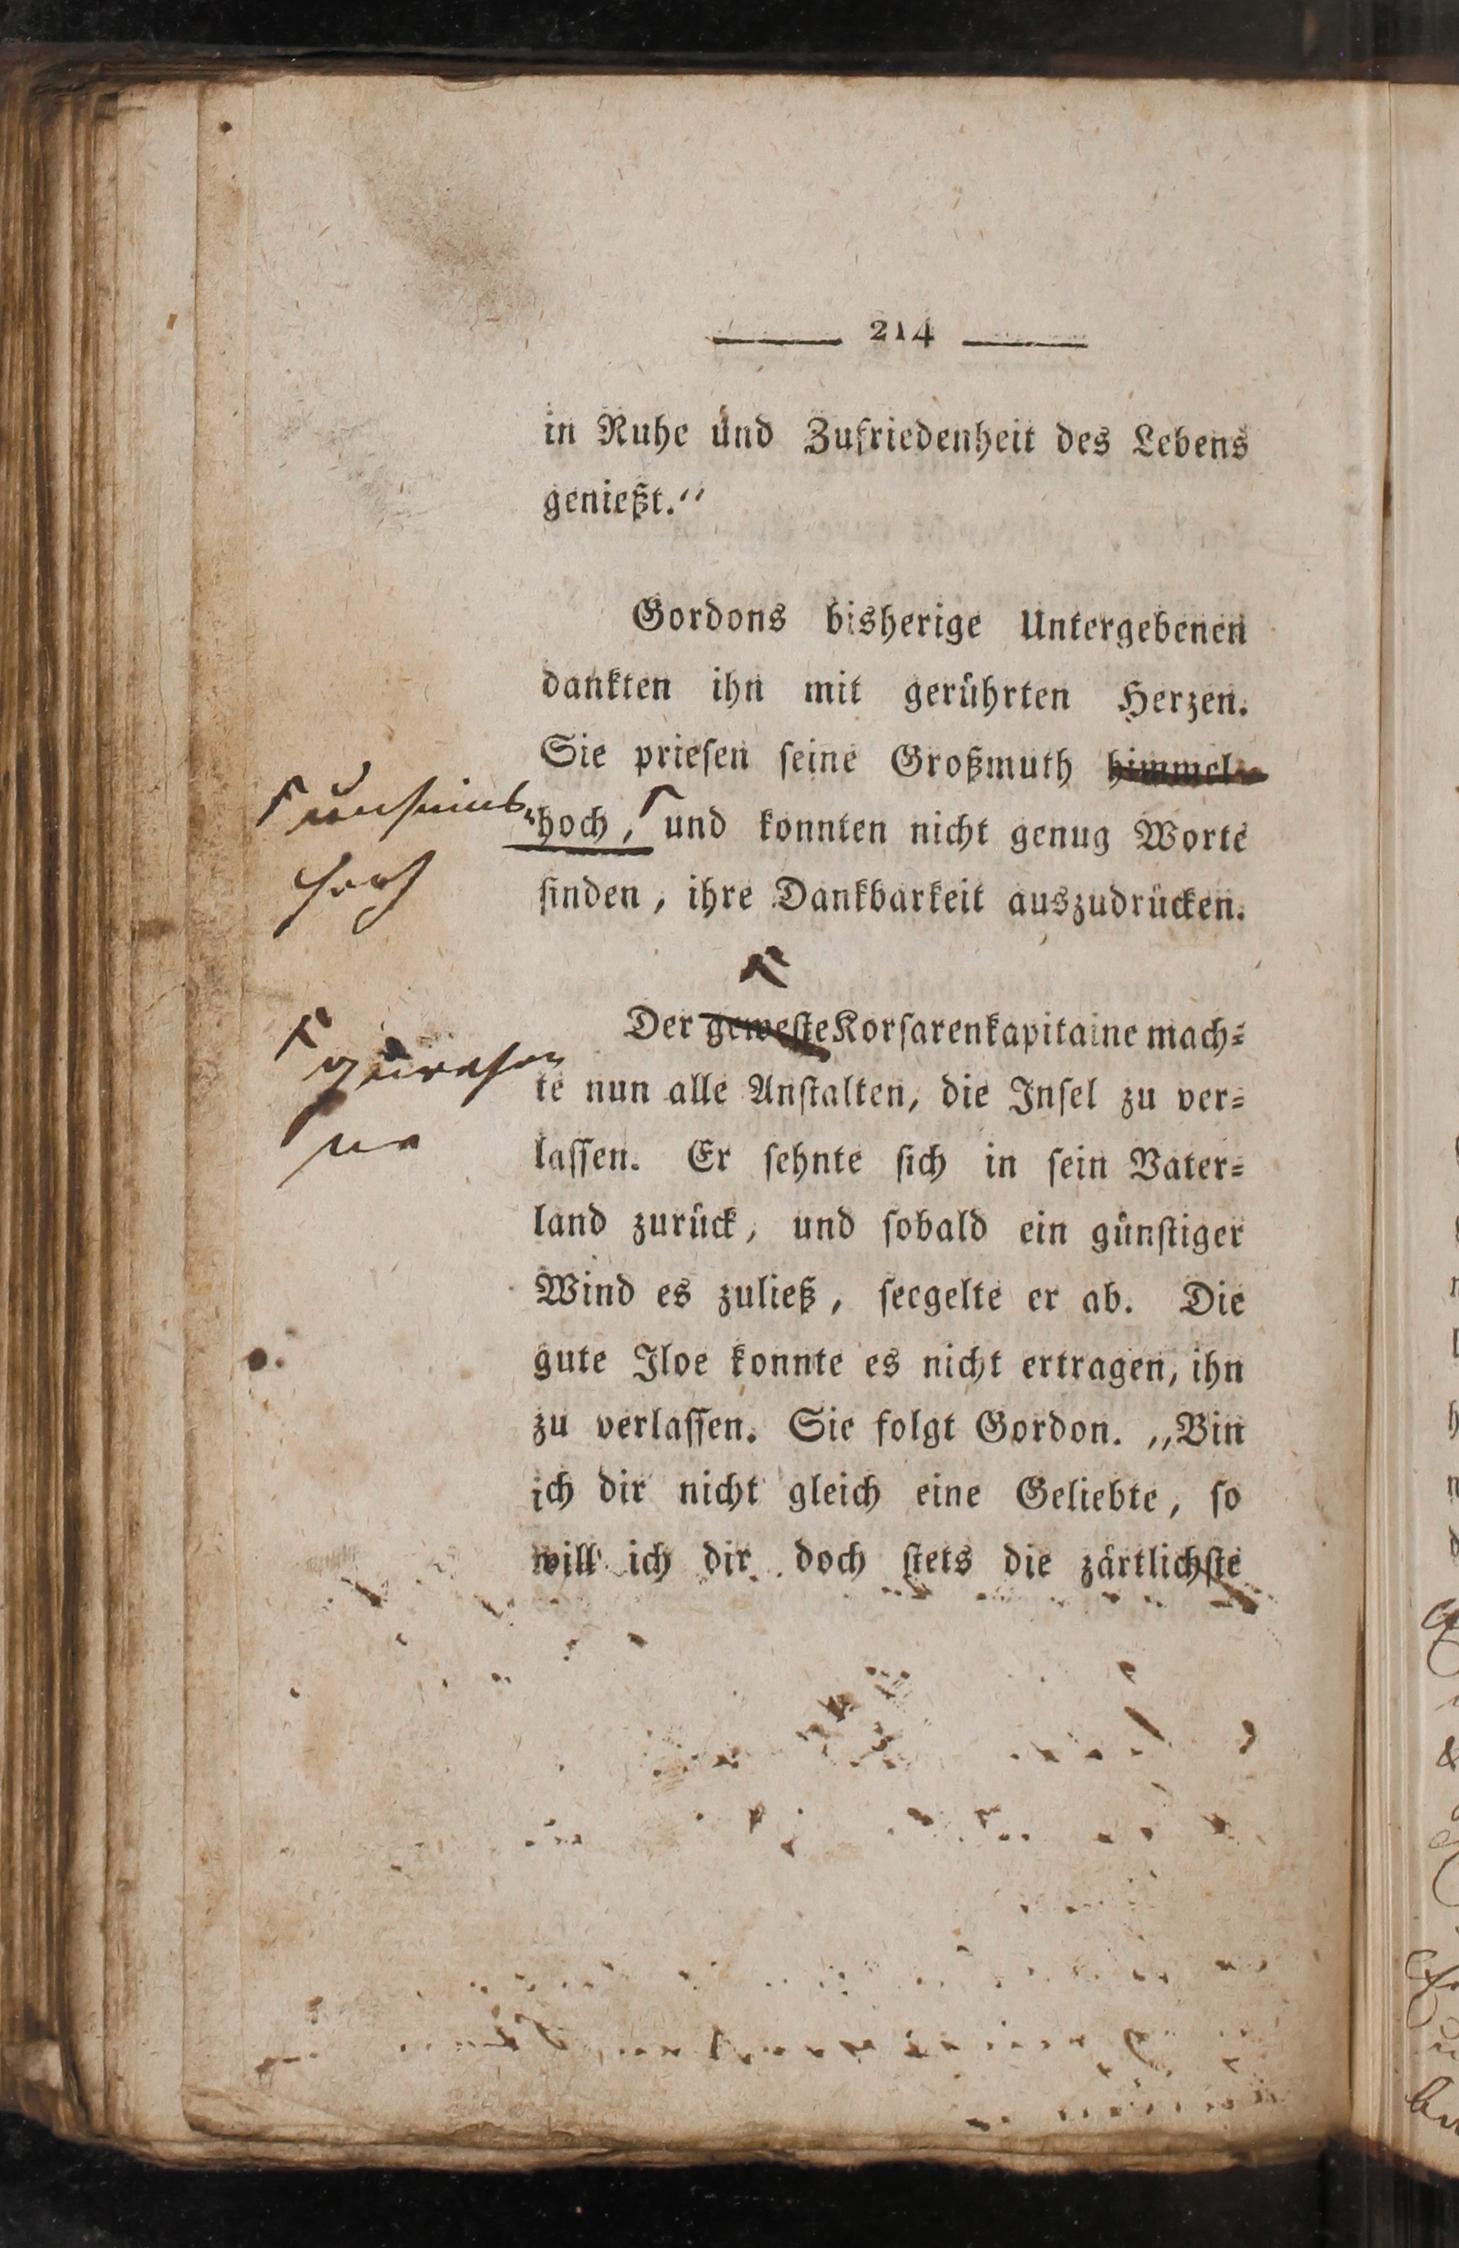 214
in Ruhe und Zufriedenheit des Lebens
genießt.“
Gordons bisherige Untergebenen
dankten ihn mit gerührten Herzen.
Sie priesen seine Großmuth himmel-
hoch, und konnten nicht genug Worte
finden, ihre Dankbarkeit auszudrücken.
hoch
Der geweste Korsarenkapitaine mach-
te nun alle Anstalten, die Insel zu ver-
lassen. Er sehnte sich in sein Vater-
land zurück, und sobald ein günstiger
Wind es zuließ, seegelte er ab. Die
gute Iloe konnte es nicht ertragen, ihn
zu verlassen. Sie folgt Gordon. „Bin
ich dir nicht gleich eine Geliebte, so
will ich dir doch stets die zärtlichste